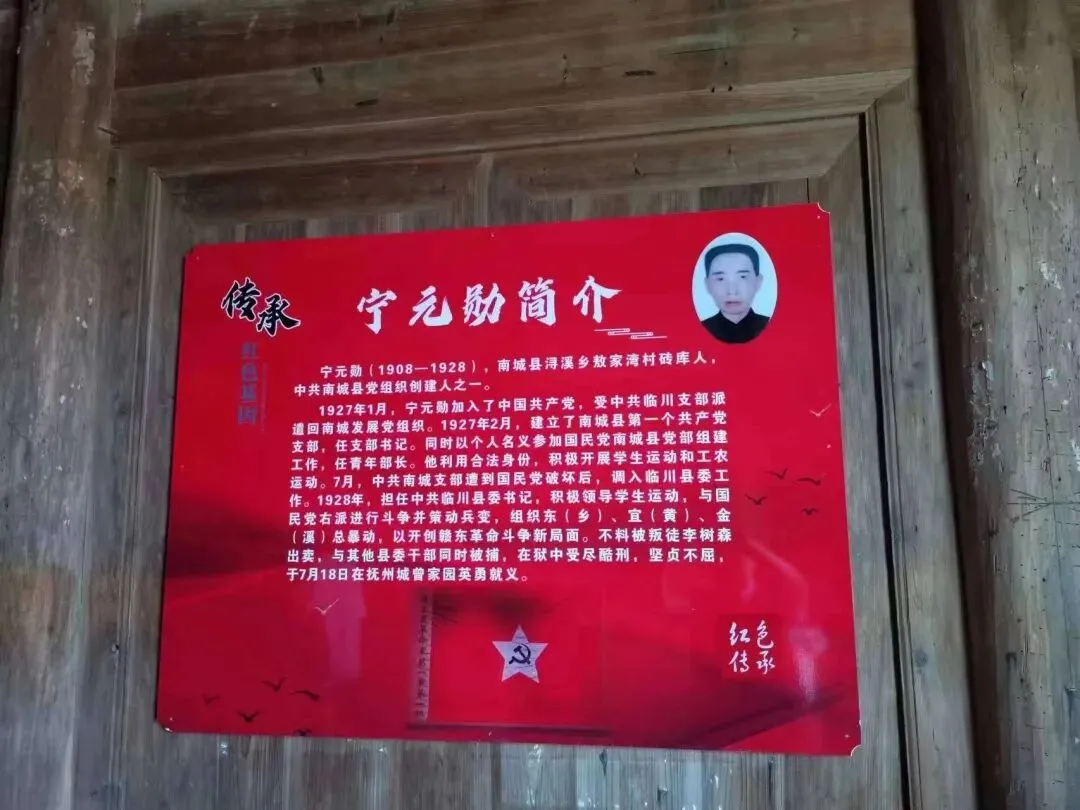 传承
红色基因
宁元勋简介
宁元勋（1908—1928），南城县浔溪乡敖家湾村砖库人，
中共南城县党组织创建人之一。
1927年1月，宁元勋加入了中国共产党，受中共临川支部派
遣回南城发展党组织。1927年2月，建立了南城县第一个共产党
支部，任支部书记。同时以个人名义参加国民党南城县党部组建
工作，任青年部长。他利用合法身份，积极开展学生运动和工农
运动。7月，中共南城支部遭到国民党破坏后，调入临川县委工
作。1928年，担任中共临川县委书记，积极领导学生运动，与国
民党右派进行斗争并策动兵变，组织东（乡）、宜（黄）、金
（溪）总暴动，以开创赣东革命斗争新局面。不料被叛徒李树森
出卖，与其他县委干部同时被捕，在狱中受尽酷刑，坚贞不屈，
于7月18日在抚州城曾家园英勇就义。
红色
传承